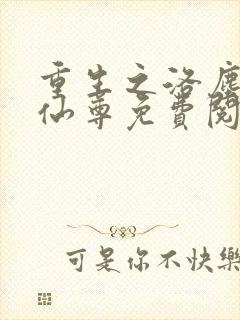 重生之洛塵
仙尊免費閱
可是你不快樂